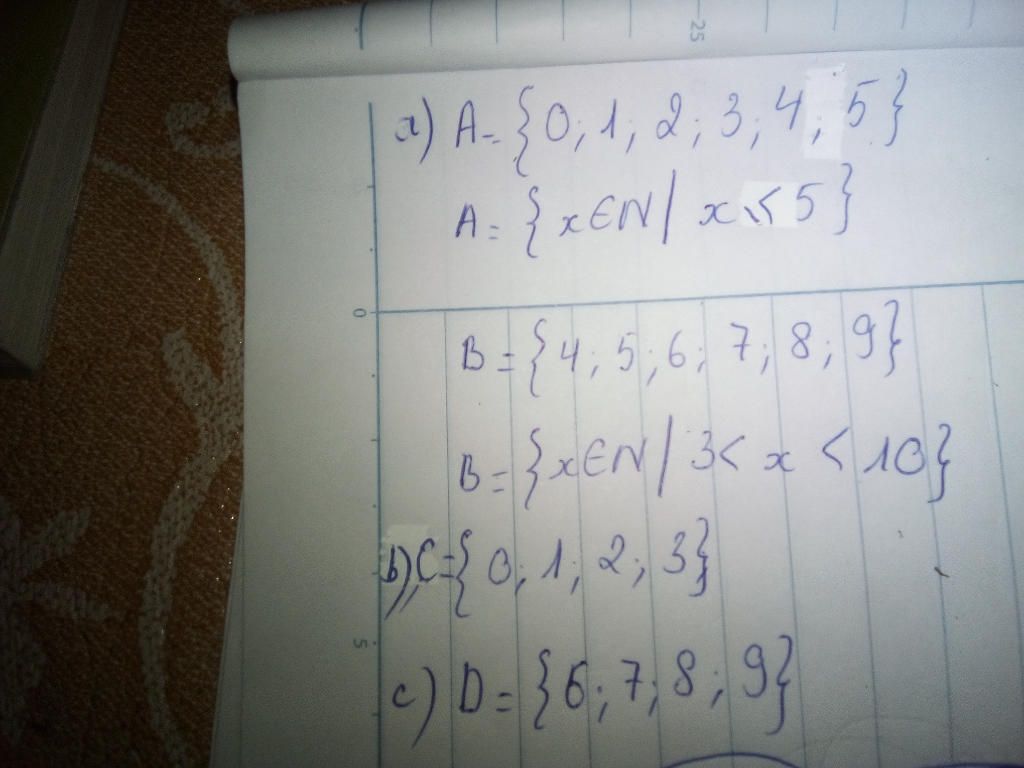 25
a) A = {0; 1; 2; 3; 4; 5}
A = {x ∈ N / x ⩽ 5}
0
B = {4; 5; 6; 7; 8; 9}
B = {x ∈ N / 3 < x < 10}
b) C = {0; 1; 2; 3}
5
c) D = {6; 7; 8; 9}